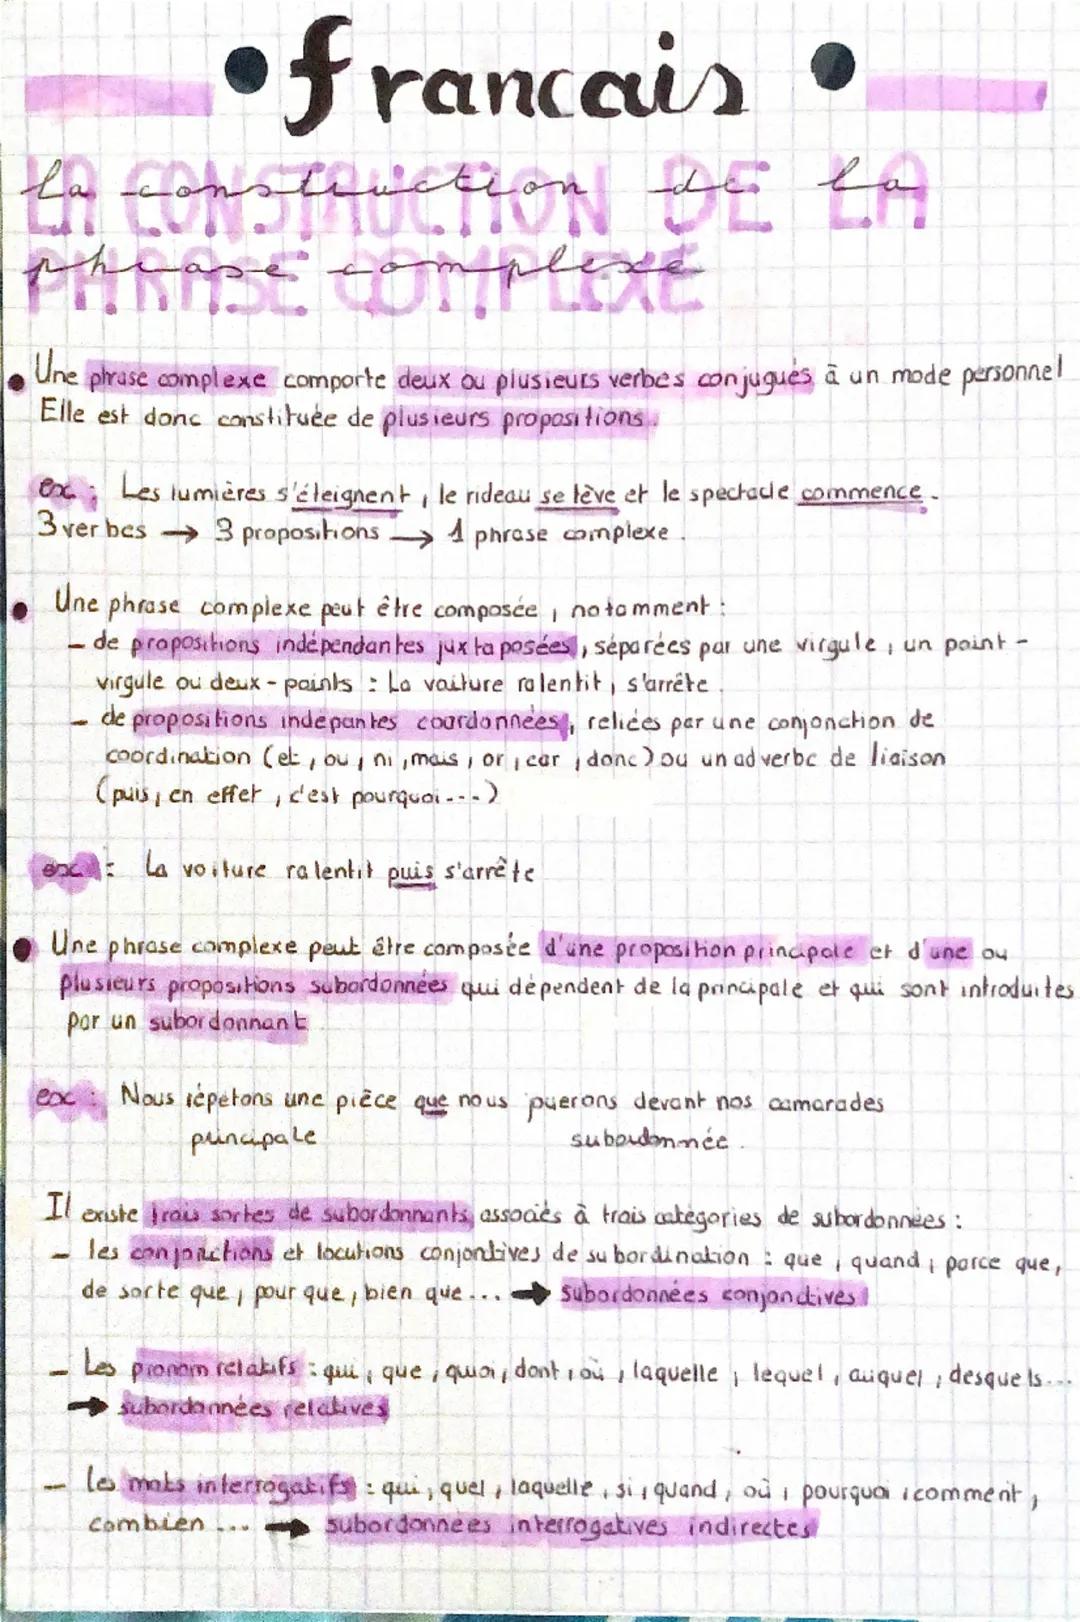 • francais •
la construction de la
LA CONSTRUCTION DE LA
phrase complexe
PHRASE COMPLEXE
• Une phrase complexe comporte deux ou plusieurs verbes conjugués à un mode personnel
Elle est donc constituée de plusieurs propositions.
ex : Les lumières s'éteignent, le rideau se lève et le spectacle commence.
3 verbes → 3 propositions → 1 phrase complexe.
• Une phrase complexe peut être composée, notamment :
- de propositions indépendantes juxtaposées, séparées par une virgule, un point-
virgule ou deux-points : La voiture ralentit, s'arrête.
- de propositions indépantes coordonnées, reliées par une conjonction de
coordination (et, ou, ni, mais, or, car, donc) ou un adverbe de liaison
(puis, en effet, c'est pourquoi...)
ex : La voiture ralentit puis s'arrête
• Une phrase complexe peut être composée d'une proposition principale et d'une ou
plusieurs propositions subordonnées qui dépendent de la principale et qui sont introduites
par un subordonnant
ex : Nous répétons une pièce que nous jouerons devant nos camarades
principale subordonnée.
Il existe trois sortes de subordonnants, associés à trois catégories de subordonnées :
- les conjonctions et locutions conjonctives de subordination : que, quand, parce que,
de sorte que, pour que, bien que... → Subordonnées conjonctives
- Les pronom relatifs : qui, que, quoi, dont, où, laquelle, lequel, auquel, desquels...
→ subordonnées relatives
- les mots interrogatifs : qui, quel, laquelle, si, quand, où, pourquoi, comment,
combien ... → subordonnées interrogatives indirectes